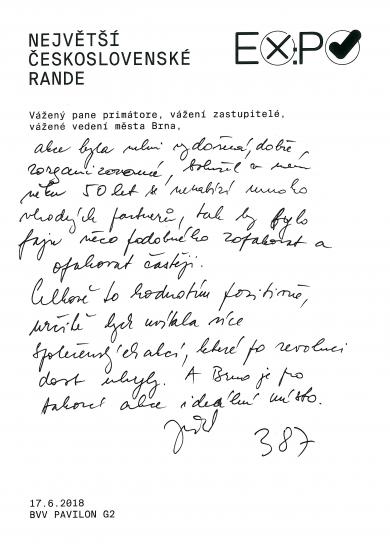 NEJVĚTŠÍ
ČESKOSLOVENSKÉ
RANDE
EXPO
Vážený pane primátore, vážení zastupitelé,
vážené vedení města Brna,
akce byla velmi vydařená, dobře
zorganizovaná, bohužel v mém
věku 50 let se nenabízí mnoho
vhodných partnerů, tak by bylo
fajn něco podobného zopakovat a
opakovat častěji.
Celkově to hodnotím pozitivně,
určitě bych uvítala více
společenských akcí, které po revoluci
dost ubyly. A Brno je pro
takové akce ideální místo.
387
17.6.2018
BVV PAVILON G2